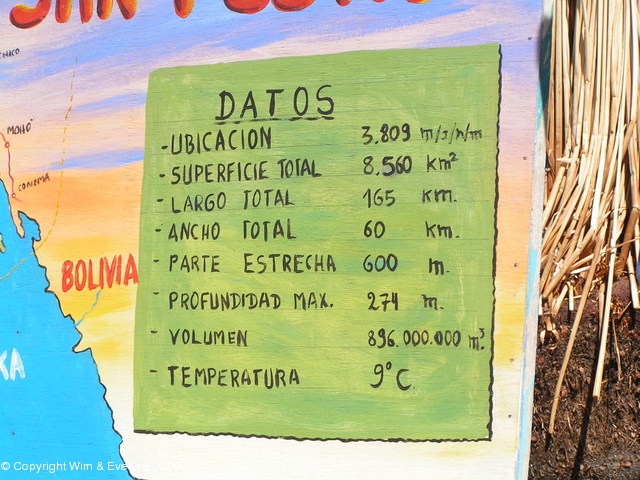 DATOS
-UBICACION 3.809 m/s/n/m
-SUPERFICIE TOTAL 8.560 Km²
- LARGO TOTAL 165 Km.
- ANCHO TOTAL 60 Km.
- PARTE ESTRECHA 600 m.
- PROFUNDIDAD MAX. 274 m.
- VOLUMEN 896.000.000 m³.
- TEMPERATURA 9°C.
MOHO
CONIMA
BOLIVIA
KA
© Copyright Wim & Eve